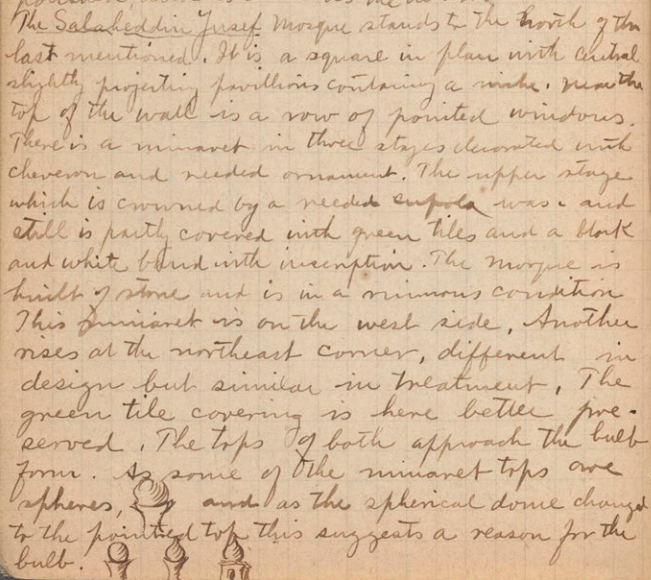 The Salaheddin Jusef Mosque stands to the north of the
last mentioned. It is a square in plan with central
slightly projecting pavillions containing a niche. near the
top of the wall is a row of pointed windows.
There is a minaret in three stages decorated with
cheveron and reeded ornament. The upper stage
which is crowned by a reeded cupola was & and
still is partly covered with green tiles and a black
and white band with inscription. The mosque is
built of stone and is in a ruinous condition
This minaret is on the west side. Another
rises at the northeast corner, different in
design but similar in treatment. The
green tile covering is here better pre-
served. The tops of both approach the bulb
form. As some of the minaret tops are
spheres, and as the spherical dome changed
to the pointed top this suggests a reason for the
bulb.